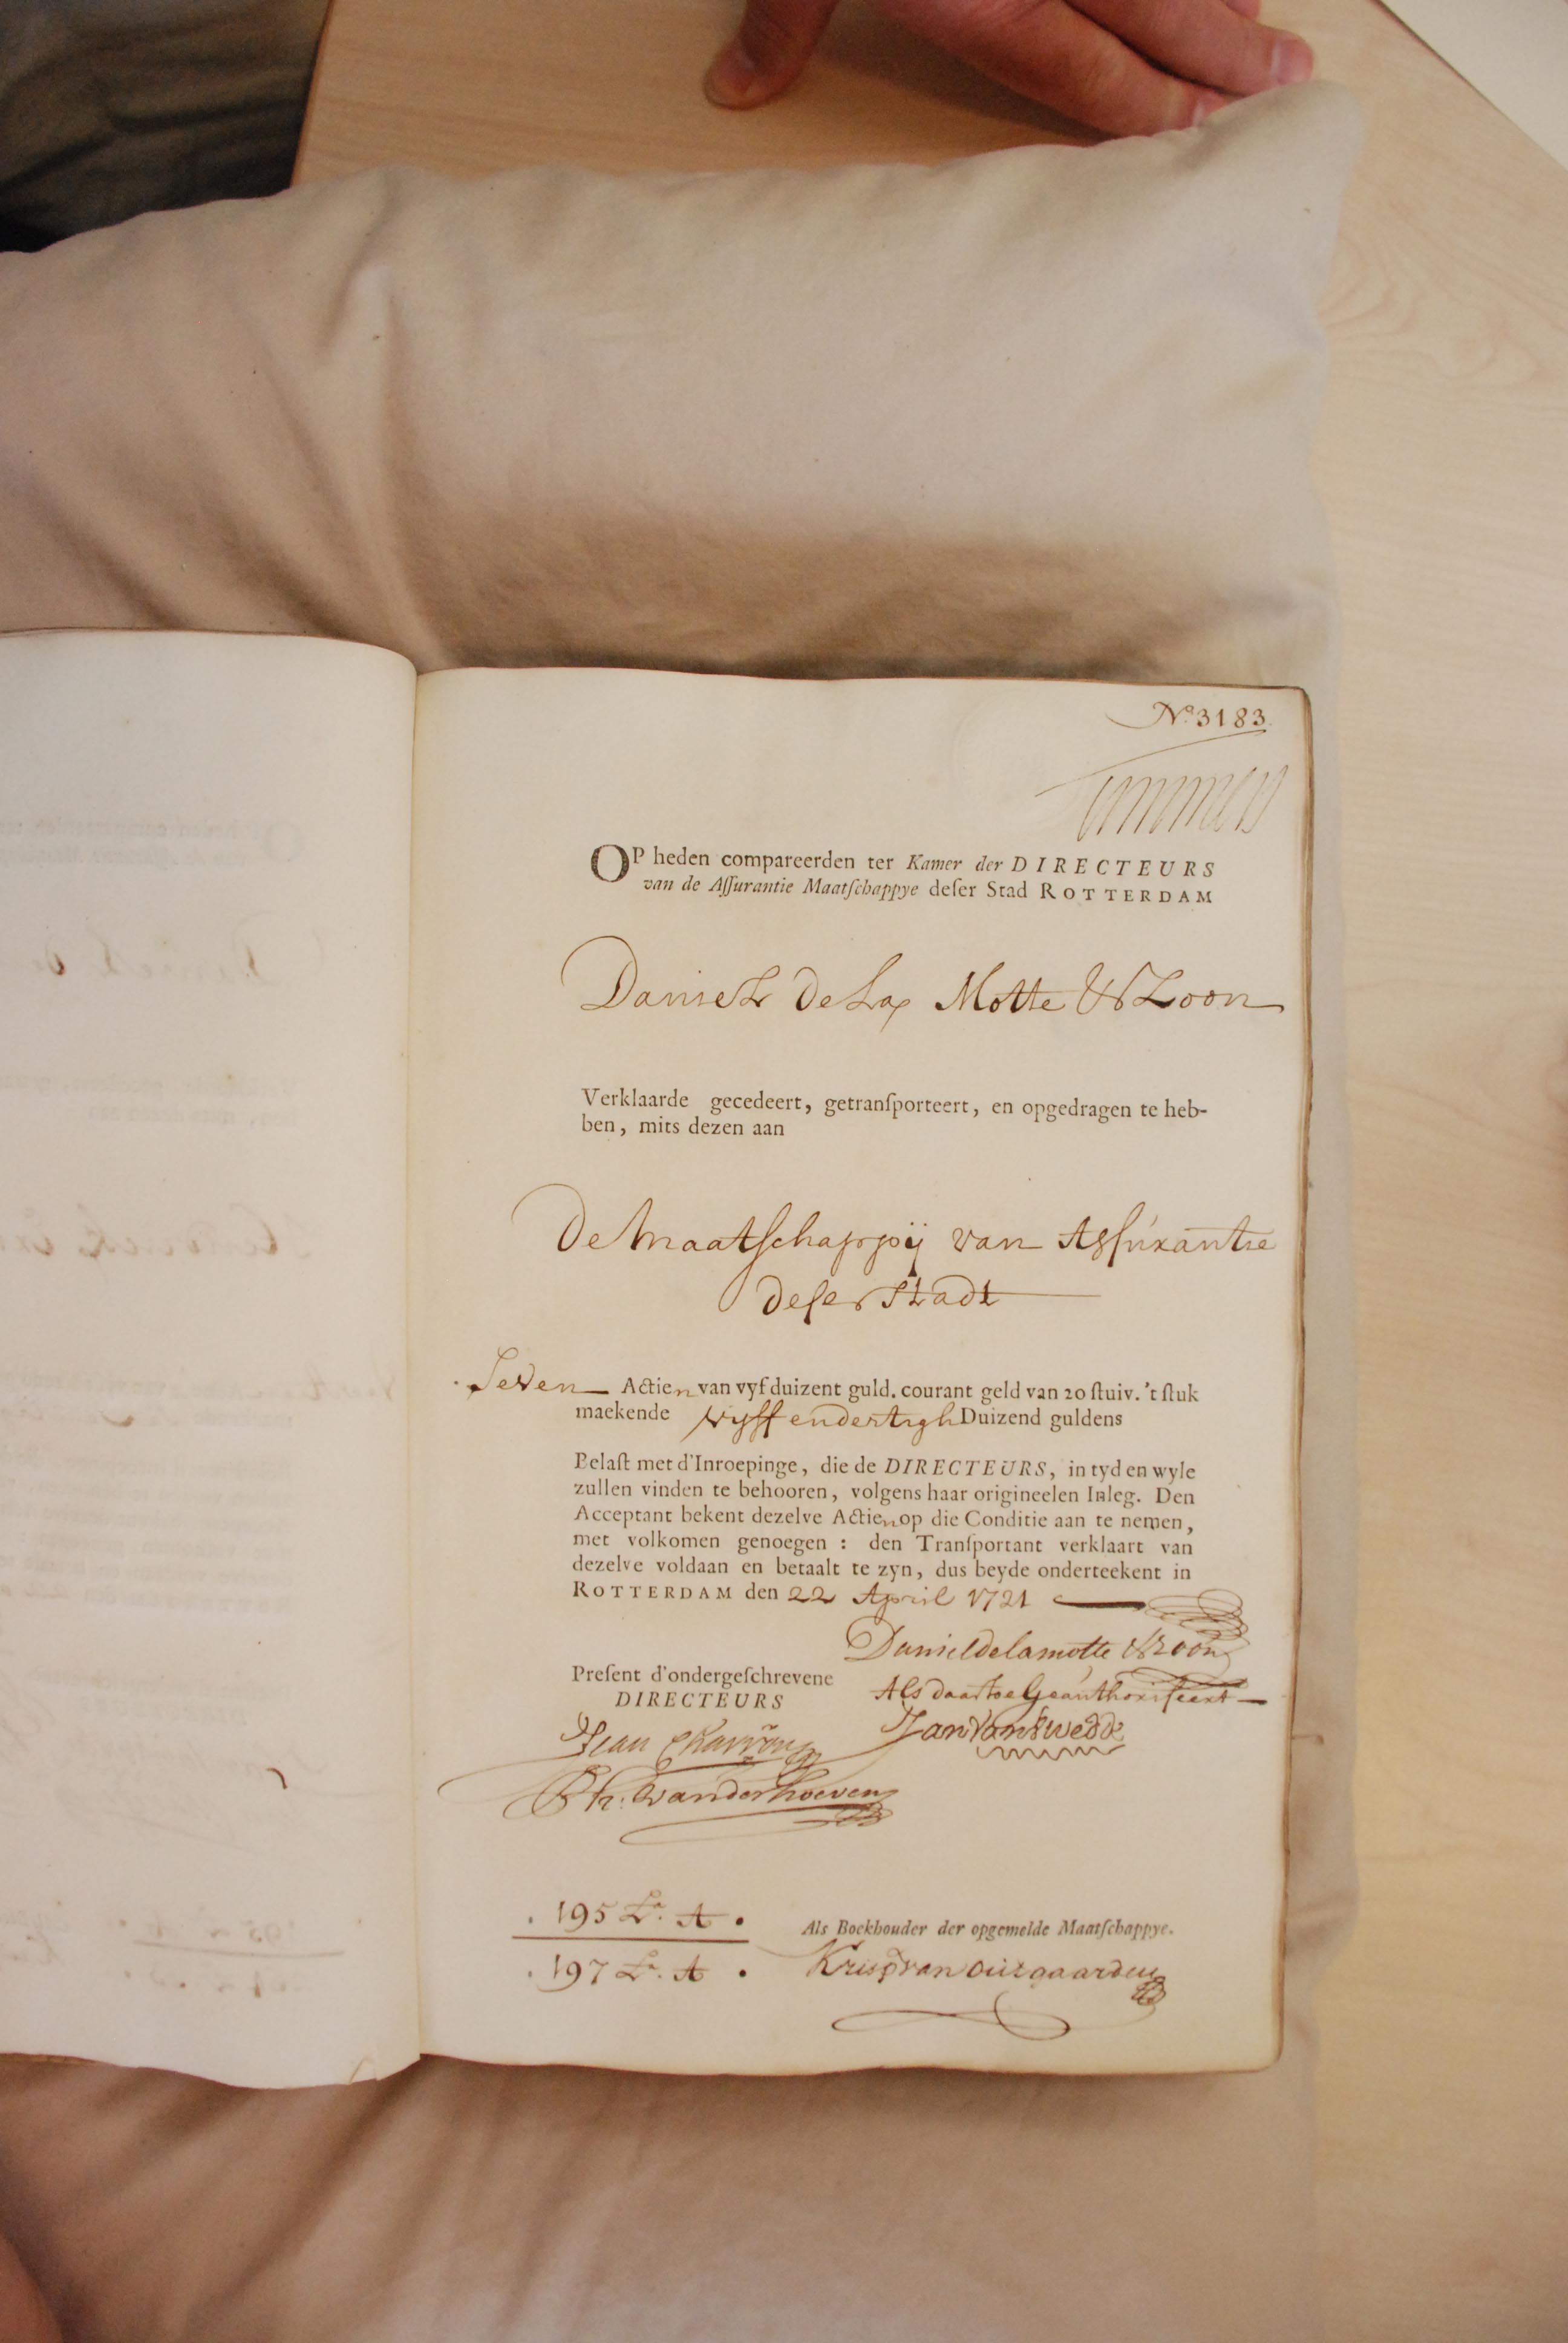 No 3183.
OP heden compareerden ter Kamer der DIRECTEURS
van de Aſſurantie Maatſchappye deſer Stad ROTTERDAM
Daniel De La Motte & Zoon
Verklaarde gecedeert, getranſporteert, en opgedragen te heb-
ben, mits dezen aan
De Maatſchappij van Asſurantie
deſer Stadt
Seven Actien van vyf duizent guld. courant geld van 20 ſtuiv. 't ſtuk
maekende vyff en dertigh Duizend guldens
Belaſt met d'Inroepinge, die de DIRECTEURS, in tyd en wyle
zullen vinden te behooren, volgens haar origineelen Inleg. Den
Acceptant bekent dezelve Actien op die Conditie aan te nemen,
met volkomen genoegen : den Tranſportant verklaart van
dezelve voldaan en betaalt te zyn, dus beyde onderteekent in
ROTTERDAM den 22 April 1721
Daniel delamotte & zoon
Preſent d'ondergeſchrevene
DIRECTEURS
Als daartoe Geauthoriſeert
Jean Charron
Jan Van
Ph. vanderhoeven
195 Lr. A.
197 Lr. A.
Als Boekhouder der opgemelde Maatſchappye.
Krisp van Outgaarden